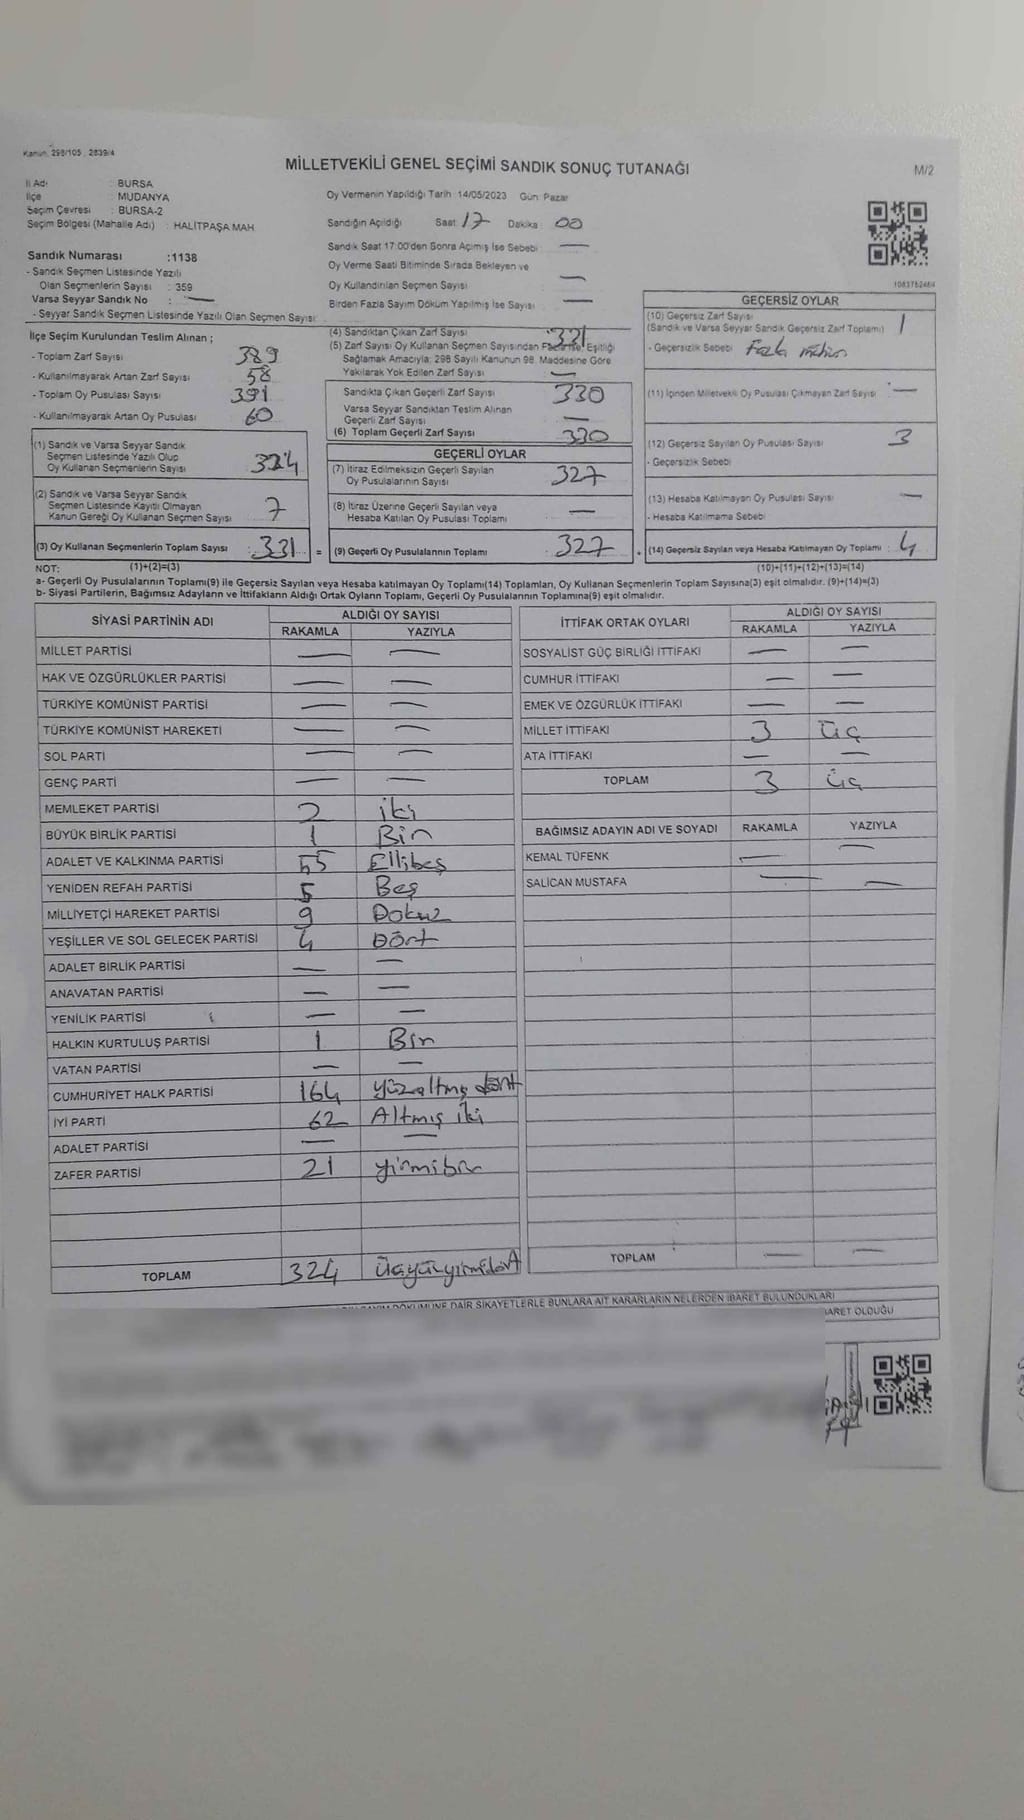 Kanun: 298/105, 2839/4
MİLLETVEKİLİ GENEL SEÇİMİ SANDIK SONUÇ TUTANAĞI
M/2
İl Adı : BURSA
İlçe : MUDANYA
Seçim Çevresi : BURSA-2
Seçim Bölgesi (Mahalle Adı) : HALİTPAŞA MAH
Oy Vermenin Yapıldığı Tarih 14/05/2023 Gün: Pazar
Sandığın Açıldığı Saat 17 Dakika 00
Sandık Saat 17:00'den Sonra Açımış İse Sebebi —
Oy Verme Saati Bitiminde Sırada Bekleyen ve
Oy Kullandırılan Seçmen Sayısı —
Birden Fazla Sayım Döküm Yapılmış İse Sayısı —
Sandık Numarası :1138
- Sandık Seçmen Listesinde Yazılı
Olan Seçmenlerin Sayısı : 359
Varsa Seyyar Sandık No : —
- Seyyar Sandık Seçmen Listesinde Yazılı Olan Seçmen Sayısı:
İlçe Seçim Kurulundan Teslim Alınan ;
- Toplam Zarf Sayısı 389
- Kullanılmayarak Artan Zarf Sayısı 58
- Toplam Oy Pusulası Sayısı 391
- Kullanılmayarak Artan Oy Pusulası 60
(1) Sandık ve Varsa Seyyar Sandık
Seçmen Listesinde Yazılı Olup
Oy Kullanan Seçmenlerin Sayısı 324
(2) Sandık ve Varsa Seyyar Sandık
Seçmen Listesinde Kayıtlı Olmayan
Kanun Gereği Oy Kullanan Seçmen Sayısı 7
(3) Oy Kullanan Seçmenlerin Toplam Sayısı : 331 =
(4) Sandıktan Çıkan Zarf Sayısı 331
(5) Zarf Sayısı Oy Kullanan Seçmen Sayısından Fazla ise, Eşitliği
Sağlamak Amacıyla; 298 Sayılı Kanunun 98. Maddesine Göre
Yakılarak Yok Edilen Zarf Sayısı —
Sandıkta Çıkan Geçerli Zarf Sayısı 330
Varsa Seyyar Sandıktan Teslim Alınan
Geçerli Zarf Sayısı —
(6) Toplam Geçerli Zarf Sayısı 330
GEÇERLİ OYLAR
(7) İtiraz Edilmeksizin Geçerli Sayılan
Oy Pusulalarının Sayısı 327
(8) İtiraz Üzerine Geçerli Sayılan veya
Hesaba Katılan Oy Pusulası Toplamı —
(9) Geçerli Oy Pusulalarının Toplamı 327
1083752464
GEÇERSİZ OYLAR
(10) Geçersiz Zarf Sayısı
(Sandık ve Varsa Seyyar Sandık Geçersiz Zarf Toplamı) 1
- Geçersizlik Sebebi Fazla mühür
(11) İçinden Milletvekili Oy Pusulası Çıkmayan Zarf Sayısı —
(12) Geçersiz Sayılan Oy Pusulası Sayısı 3
- Geçersizlik Sebebi
(13) Hesaba Katılmayan Oy Pusulası Sayısı —
- Hesaba Katılmama Sebebi
(14) Geçersiz Sayılan veya Hesaba Katılmayan Oy Toplamı : 4
NOT: (1)+(2)=(3) (10)+(11)+(12)+(13)=(14)
a- Geçerli Oy Pusulalarının Toplamı(9) ile Geçersiz Sayılan veya Hesaba katılmayan Oy Toplamı(14) Toplamları, Oy Kullanan Seçmenlerin Toplam Sayısına(3) eşit olmalıdır. (9)+(14)=(3)
b- Siyasi Partilerin, Bağımsız Adayların ve İttifakların Aldığı Ortak Oyların Toplamı, Geçerli Oy Pusulalarının Toplamına(9) eşit olmalıdır.
SİYASİ PARTİNİN ADI ALDIĞI OY SAYISI
RAKAMLA YAZIYLA
MİLLET PARTİSİ — —
HAK VE ÖZGÜRLÜKLER PARTİSİ — —
TÜRKİYE KOMÜNİST PARTİSİ — —
TÜRKİYE KOMÜNİST HAREKETİ — —
SOL PARTİ — —
GENÇ PARTİ — —
MEMLEKET PARTİSİ 2 iki
BÜYÜK BİRLİK PARTİSİ 1 Bir
ADALET VE KALKINMA PARTİSİ 55 Ellibeş
YENİDEN REFAH PARTİSİ 5 Beş
MİLLİYETÇİ HAREKET PARTİSİ 9 Dokuz
YEŞİLLER VE SOL GELECEK PARTİSİ 4 Dört
ADALET BİRLİK PARTİSİ — —
ANAVATAN PARTİSİ — —
YENİLİK PARTİSİ — —
HALKIN KURTULUŞ PARTİSİ 1 Bir
VATAN PARTİSİ — —
CUMHURİYET HALK PARTİSİ 164 yüzaltmış dört
İYİ PARTİ 62 Altmış iki
ADALET PARTİSİ — —
ZAFER PARTİSİ 21 yirmibir
TOPLAM 324 üçyüzyirmidört
İTTİFAK ORTAK OYLARI ALDIĞI OY SAYISI
RAKAMLA YAZIYLA
SOSYALİST GÜÇ BİRLİĞİ İTTİFAKI — —
CUMHUR İTTİFAKI — —
EMEK VE ÖZGÜRLÜK İTTİFAKI — —
MİLLET İTTİFAKI 3 üç
ATA İTTİFAKI — —
TOPLAM 3 üç
BAĞIMSIZ ADAYIN ADI VE SOYADI RAKAMLA YAZIYLA
KEMAL TÜFENK — —
SALİCAN MUSTAFA — —
TOPLAM — —
DÖKÜMÜNE DAİR ŞİKAYETLERLE BUNLARA AİT KARARLARIN NELERDEN İBARET BULUNDUKLARI
İBARET OLDUĞU